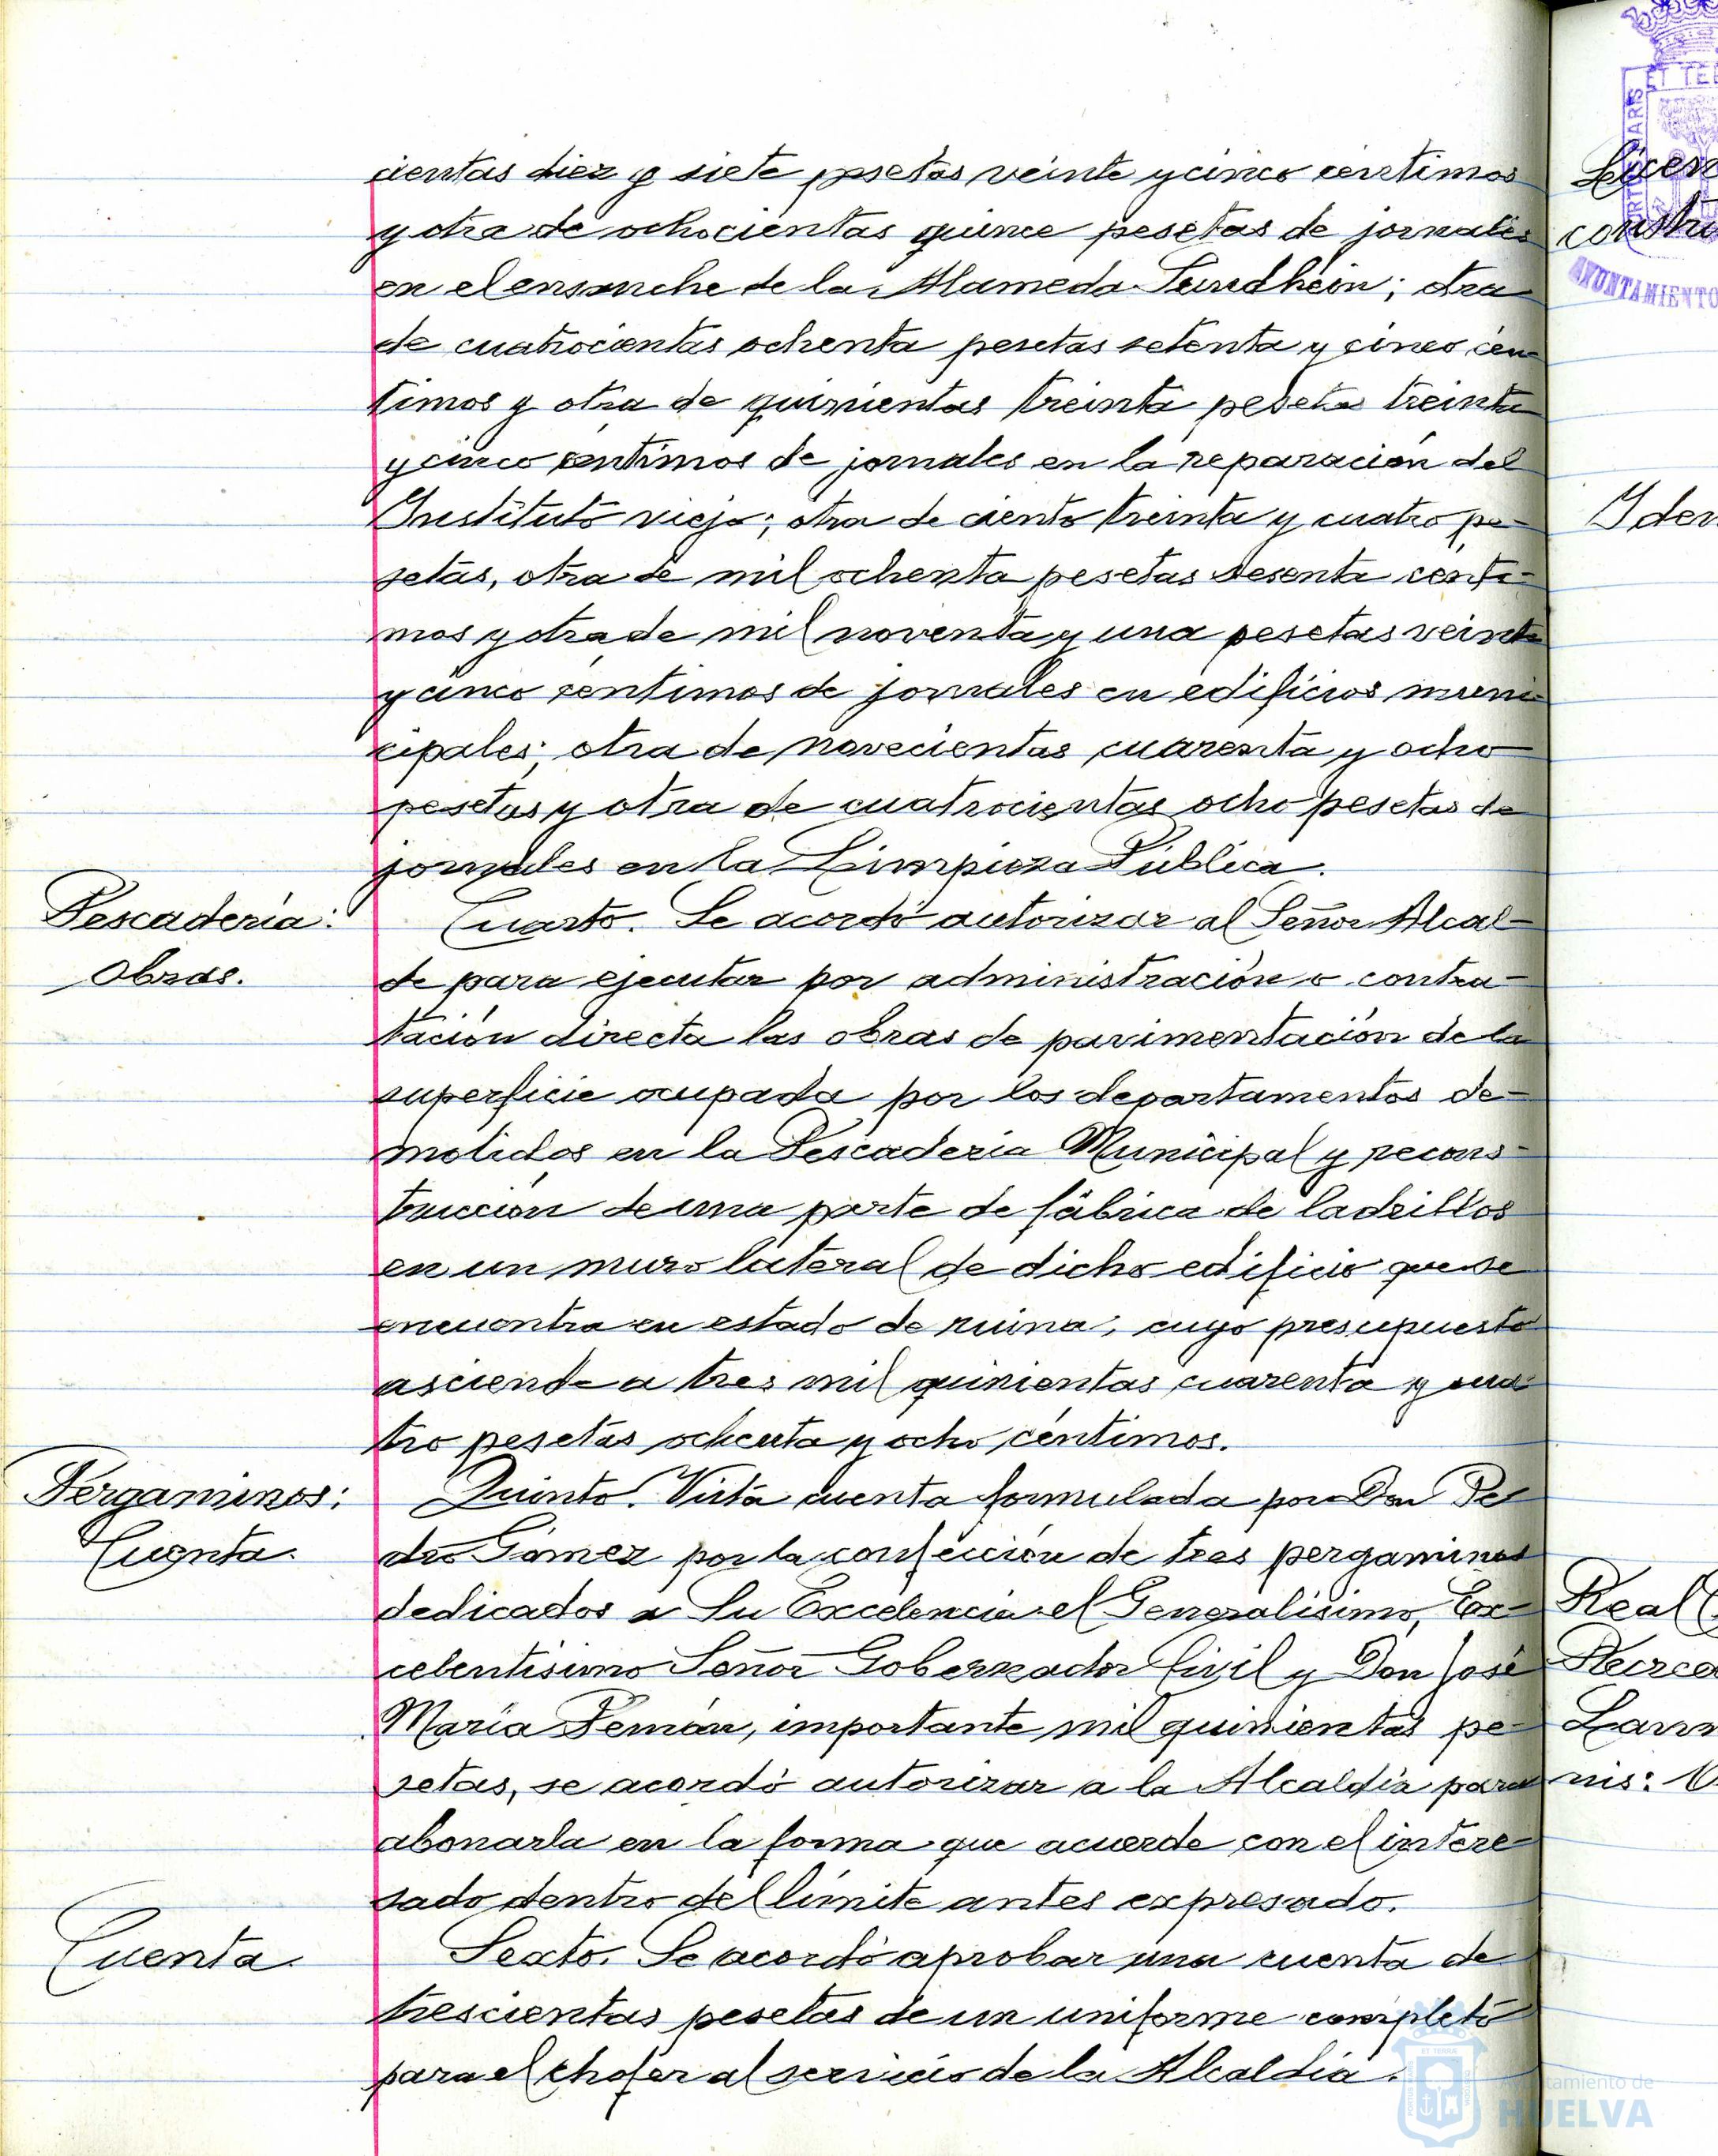 cientas diez y siete pesetas veinte y cinco centimos
y otra de ochocientas quince pesetas de jornales
en el ensanche de la Alameda Sundhein; otra
de cuatrocientas ochenta pesetas setenta y cinco cén-
timos y otra de quinientas treinta pesetas treinta
y cinco centimos de jornales en la reparación del
Instituto viejo; otra de ciento treinta y cuatro pe-
setas, otra de mil ochenta pesetas sesenta centi-
mos y otra de mil noventa y una pesetas veinte
y cinco centimos de jornales en edificios muni-
cipales; otra de novecientas cuarenta y ocho
pesetas y otra de cuatrocientas ocho pesetas de
jornales en la Limpieza Pública.
Pescadería:
Obras.
Cuarto. Se acordó autorizar al Señor Alcal-
de para ejecutar por administración o contra-
tación directa las obras de pavimentación de la
superficie ocupada por los departamentos de-
molidos en la Pescadería Municipal y recons-
trucción de una parte de fábrica de ladrillos
en un muro lateral de dicho edificio que se
encuentra en estado de ruina, cuyo presupuesto
asciende a tres mil quinientas cuarenta y cua-
tro pesetas ochenta y ocho céntimos.
Pergaminos:
Cuenta.
Quinto. Vista cuenta formulada por Don Pe-
dro Gómez por la confección de tres pergaminos
dedicados a Su Excelencia el Generalísimo, Ex-
celentísimo Señor Gobernador Civil y Don José
María Pemán, importante mil quinientas pe-
setas, se acordó autorizar a la Alcaldía para
abonarla en la forma que acuerde con el intere-
sado dentro del límite antes expresado.
Cuenta.
Sexto. Se acordó aprobar una cuenta de
trescientas pesetas de un uniforme completo
para el chofer al servicio de la Alcaldía.
Licen
constru
AYUNTAMIENTO
Iden
Real
Lawn
nis:
Ayuntamiento de
HUELVA